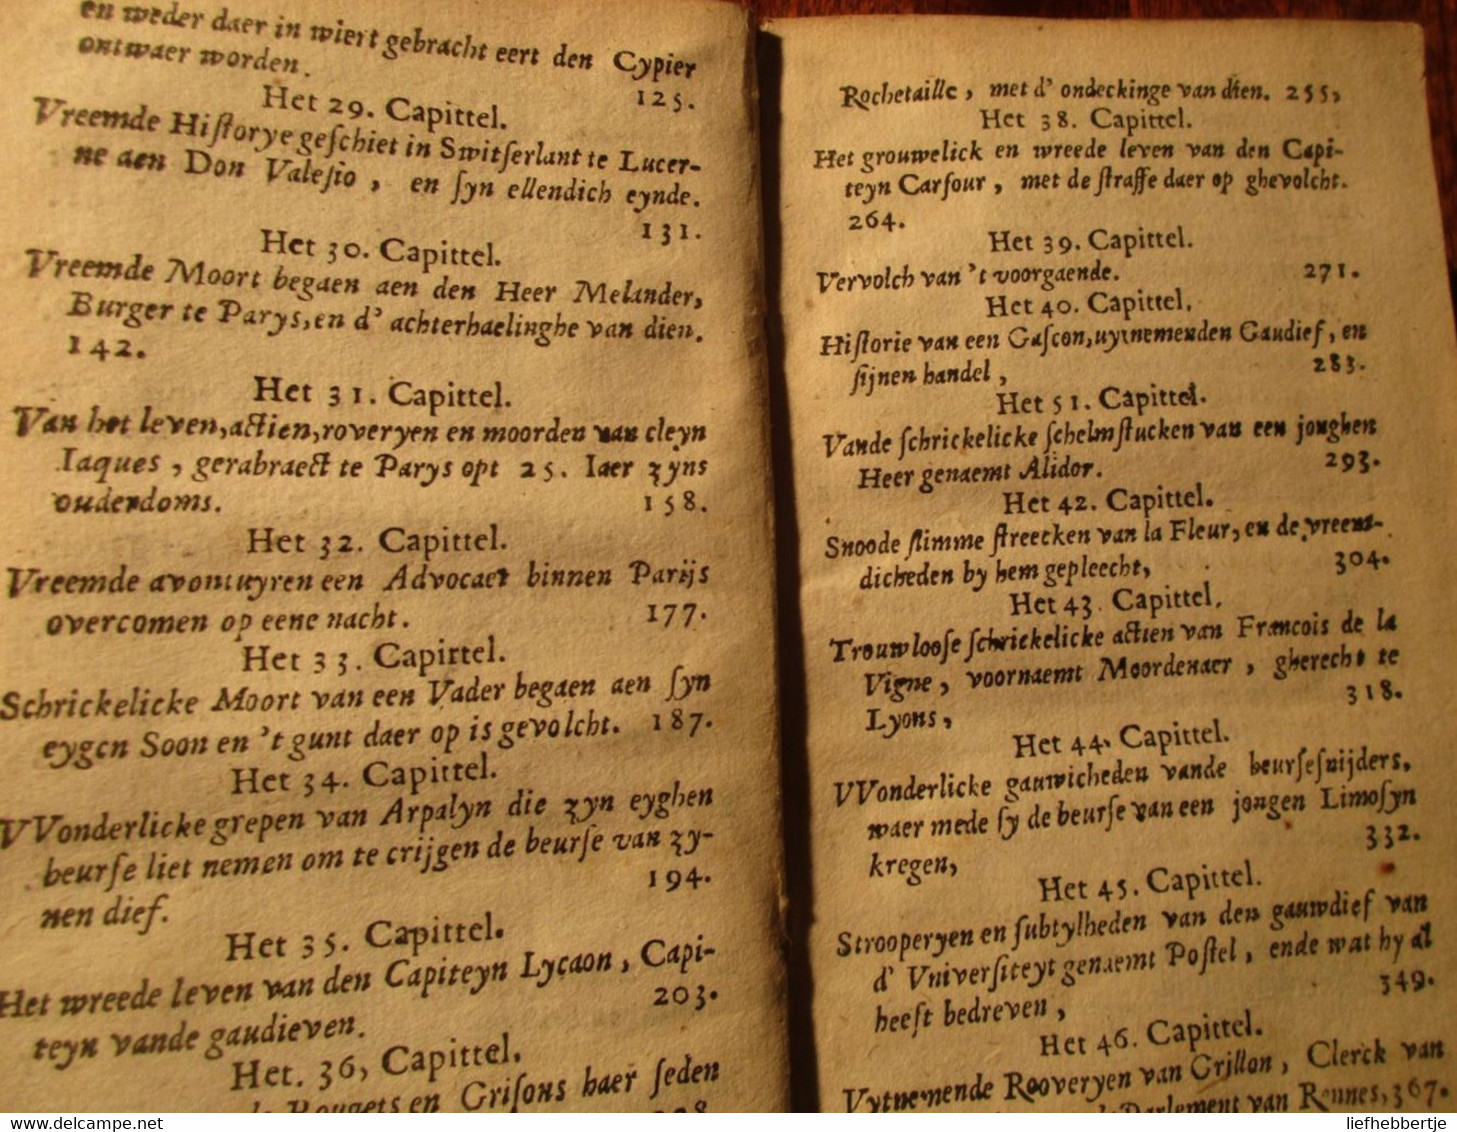 en weder daer in wiert gebracht eert den Cypier
ontwaer worden. 125.
Het 29. Capittel.
Vreemde Hiſtorye geſchiet in Switſerlant te Lucer-
ne aen Don Valeſio, en ſyn ellendich eynde.
131.
Het 30. Capittel.
Vreemde Moort begaen aen den Heer Melander,
Burger te Parys, en d' achterhaelinghe van dien.
142.
Het 31. Capittel.
Van het leven, actien, roveryen en moorden van cleyn
Iaques, gerabraect te Parys opt 25. Iaer zyns
ouderdoms. 158.
Het 32. Capittel.
Vreemde avontuyren een Advocaet binnen Parijs
overcomen op eene nacht. 177.
Het 33. Capittel.
Schrickelicke Moort van een Vader begaen aen ſyn
eygen Soon en 't gunt daer op is gevolcht. 187.
Het 34. Capittel.
VVonderlicke grepen van Arpalyn die zyn eyghen
beurſe liet nemen om te crijgen de beurſe van zy-
nen dief. 194.
Het 35. Capittel.
Het wreede leven van den Capiteyn Lycaon, Capi-
teyn vande gaudieven. 203.
Het. 36, Capittel.
Rougets en Griſons haer ſeden
Rochetaille, met d' ondeckinge van dien. 255,
Het 38. Capittel.
Het grouwelick en wreede leven van den Capi-
teyn Carfour, met de ſtraffe daer op ghevolcht.
264.
Het 39. Capittel.
Vervolch van 't voorgaende. 271.
Het 40. Capittel.
Hiſtorie van een Gaſcon, uytnemenden Gaudief, en
ſijnen handel, 283.
Het 51. Capittel.
Vande ſchrickelicke ſchelmſtucken van een jonghen
Heer genaemt Alidor. 293.
Het 42. Capittel.
Snoode ſlimme ſtreecken van la Fleur, en de vreent-
dicheden by hem gepleecht, 304.
Het 43. Capittel.
Trouwlooſe ſchrickelicke actien van Francois de la
Vigne, voornaemt Moordenaer, gherecht te
Lyons, 318.
Het 44. Capittel.
VVonderlicke gauwicheden vande beurſeſnijders,
waer mede ſy de beurſe van een jongen Limoſyn
kregen, 332.
Het 45. Capittel.
Strooperyen en ſubtylheden van den gauwdief van
d' Vniverſiteyt genaemt Poſtel, ende wat hy al
heeft bedreven, 349.
Het 46. Capittel.
Vytnemende Rooveryen van Grillon, Clerck van
Parlement van Rennes, 367.
delcampe.net
liefhebbertje